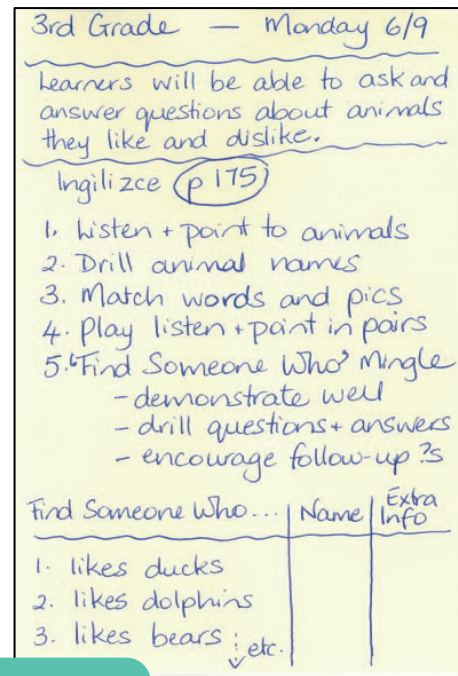 3rd Grade — Monday 6/9
Learners will be able to ask and
answer questions about animals
they like and dislike.
Ingilizce p 175
1. Listen + point to animals
2. Drill animal names
3. Match words and pics
4. Play listen + point in pairs
5. 'Find Someone Who' Mingle
- demonstrate well
- drill questions + answers
- encourage follow-up ?s
Find Someone Who... | Name | Extra Info
1. likes ducks
2. likes dolphins
3. likes bears etc.